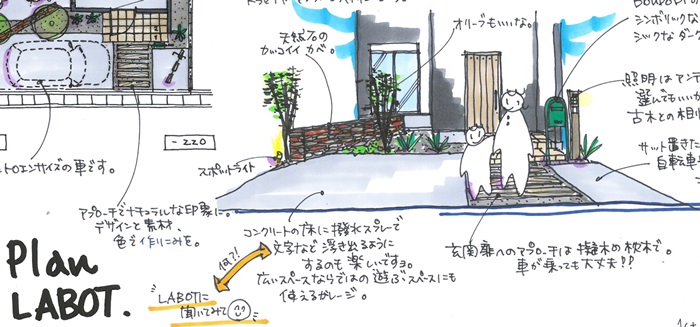 オリーブもいいな。
天然石の
カッコイイ カベ。
シンボリック
シックなダーク
照明はアン
選んでもいいか
古木との相
サット置きた
自転車
-220
トロエンサイズの車です。
スポットライト
アプローチでナチュラルな印象に。
デザインと素材、
色で作りこみを。
コンクリートの床に撥水スプレーで
文字など浮き出るように
するのも楽しいですョ。
広いスペースならではの遊ぶスペースにも
使えるガレージ。
玄関扉へのアプローチは擬木の枕木で。
車が乗っても大丈夫!!
何で?!
LABOTに
聞いてみて
Plan
LABOT.